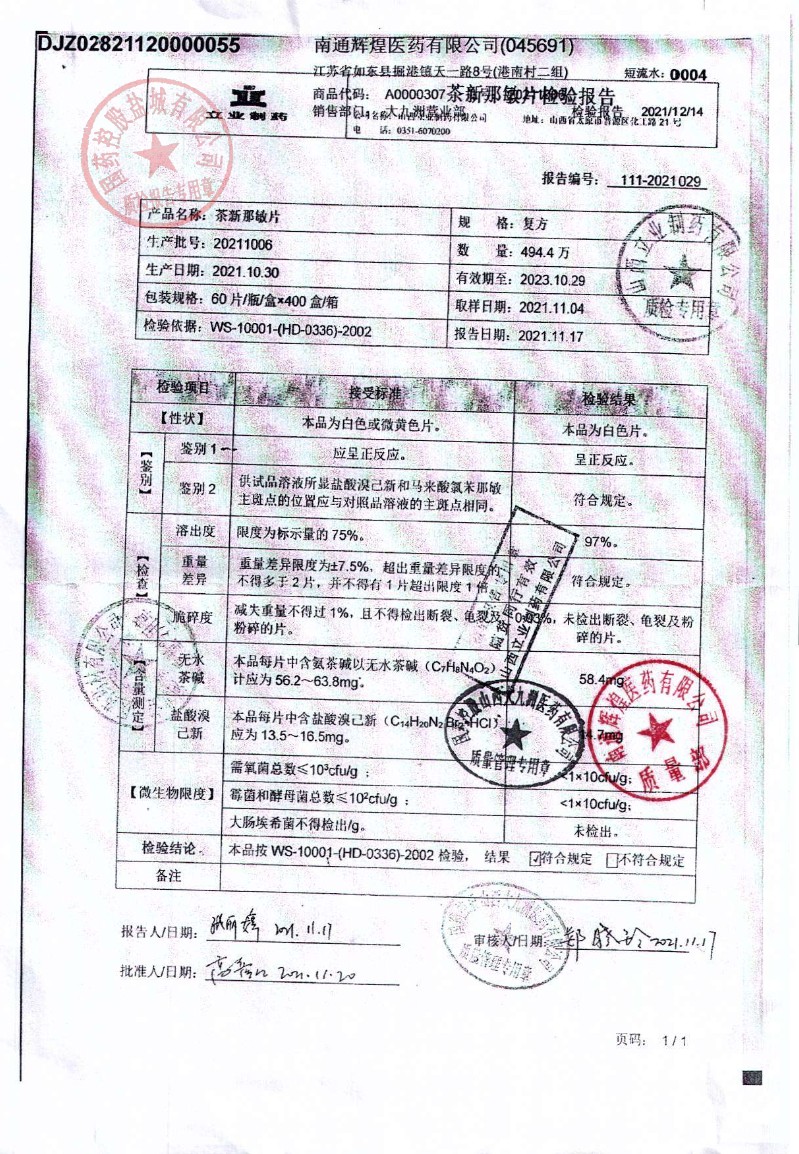 DJZ02821120000055
南通辉煌医药有限公司(045691)
江苏省如东县掘港镇天一路8号(港南村二组)
短流水：0004
商品代码： A0000307
茶新那敏片检验报告
立业制药
销售部门：大九洲营业部
检验报告 2021/12/14
地址：山西省太原市晋源区化工路 21 号
电 话：0351-6070200
报告编号： 111-2021029
产品名称：茶新那敏片
规 格：复方
生产批号：20211006
数 量：494.4 万
生产日期：2021.10.30
有效期至：2023.10.29
包装规格：60 片/瓶/盒×400 盒/箱
取样日期：2021.11.04
检验依据：WS-10001-(HD-0336)-2002
报告日期：2021.11.17
检验项目 接受标准 检验结果
【性状】 本品为白色或微黄色片。 本品为白色片。
【鉴别】
鉴别 1 应呈正反应。 呈正反应。
鉴别 2 供试品溶液所显盐酸溴己新和马来酸氯苯那敏
主斑点的位置应与对照品溶液的主斑点相同。 符合规定。
【检查】
溶出度 限度为标示量的 75%。 97%。
重量差异 重量差异限度为±7.5%，超出重量差异限度的
不得多于 2 片，并不得有 1 片超出限度 1 倍 符合规定。
脆碎度 减失重量不得过 1%，且不得检出断裂、龟裂及
粉碎的片。
0.03%，未检出断裂、龟裂及粉
碎的片。
【含量测定】
无水茶碱 本品每片中含氨茶碱以无水茶碱（C₇H₈N₄O₂）
计应为 56.2~63.8mg。 58.4mg。
盐酸溴己新 本品每片中含盐酸溴己新（C₁₄H₂₀N₂Br₂·HCl）
应为 13.5~16.5mg。 4.7mg
【微生物限度】
需氧菌总数≤10³cfu/g； <1×10cfu/g;
霉菌和酵母菌总数≤10²cfu/g； <1×10cfu/g;
大肠埃希菌不得检出/g。 未检出。
检验结论 本品按 WS-10001-(HD-0336)-2002 检验， 结果 ☑符合规定 □不符合规定
备注
报告人/日期： 2021.11.17
审核人/日期： 2021.11.17
批准人/日期： 2021.11.20
页码： 1 / 1
国药控股盐城有限公司
质检报告专用章
山西立业制药有限公司
质检专用章
山西立业制药有限公司
国药控股山西大九洲医药有限公司
质量管理专用章
南通辉煌医药有限公司
质量部
质量管理专用章